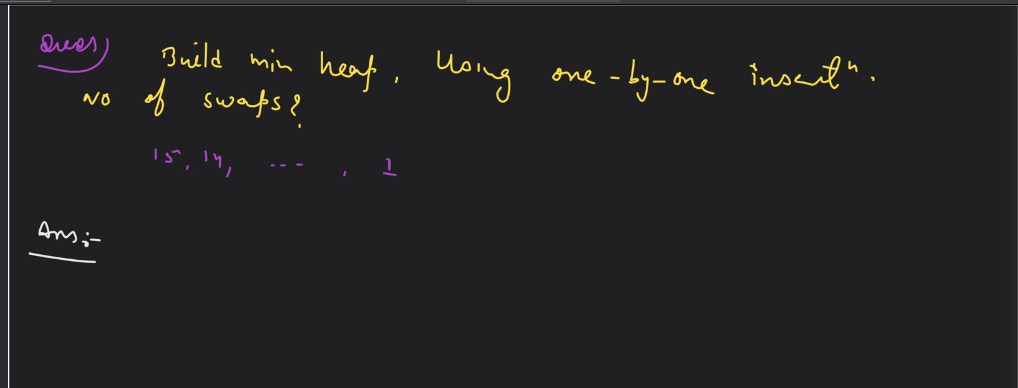 Ques)
Build min heap. Using one-by-one insertⁿ.
NO of swaps?
15, 14, --- , 1
Ans:-